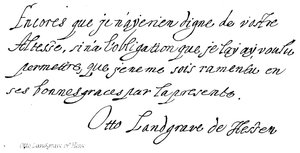 Encores que je n'ay rien digne de vostre
Altesse, si n'a l'obligation que je luy ay voulu
permettre, que je ne me sois ramentu en
ses bonnes graces par la presente.
Otto Landgrave de Hessen